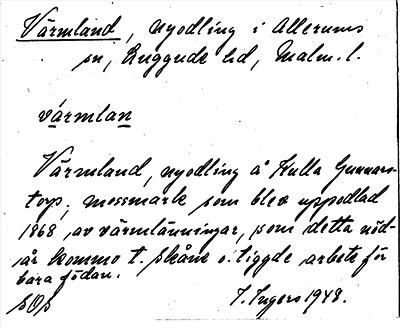 Värmland, nyodling i Allerums
sn, Luggude hd, Malm. l.
värmlan
Värmland, nyodling å Kulla Gunnars-
torp, mossmark som blev uppodlad
1868 av värmlänningar, som detta nöd-
år kommo t. Skåne o. tiggde arbete för
bara födan.
7. Ingers 1948.